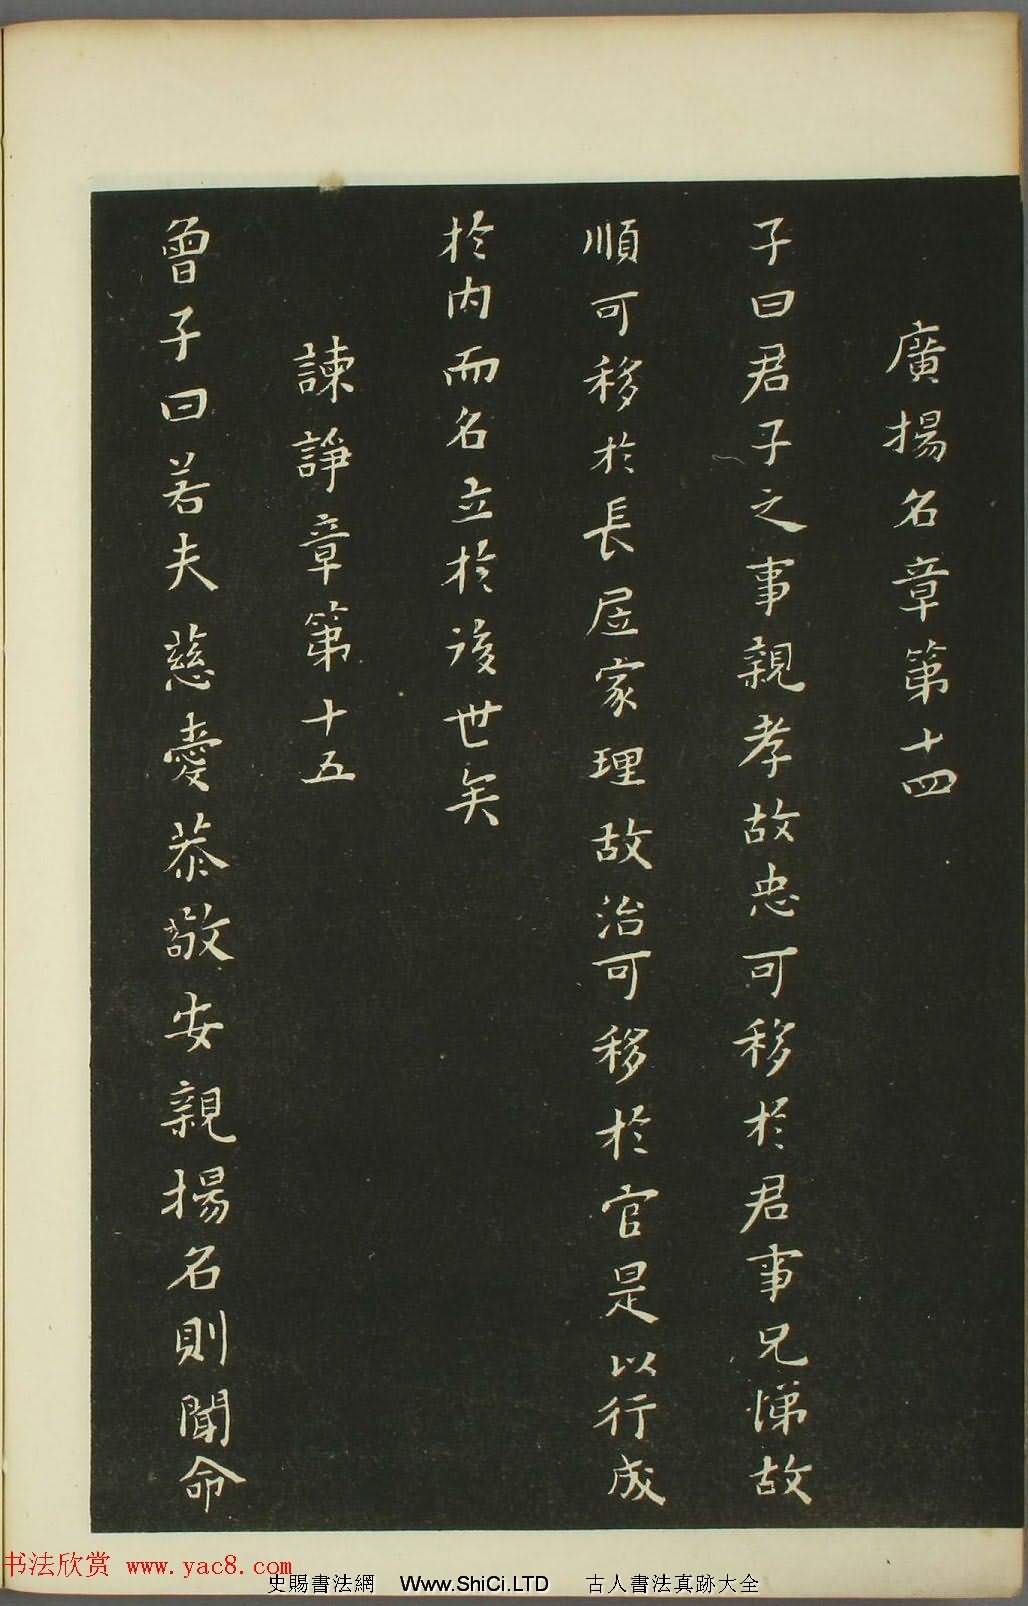 廣揚名章第十四
子曰君子之事親孝故忠可移於君事兄悌故
順可移於長居家理故治可移於官是以行成
於内而名立於後世矣
諫諍章第十五
曾子曰若夫慈愛恭敬安親揚名則聞命
书法欣赏 www.yac8.com
史賜書法網 Www.ShiCi.LTD 古人書法真跡大全